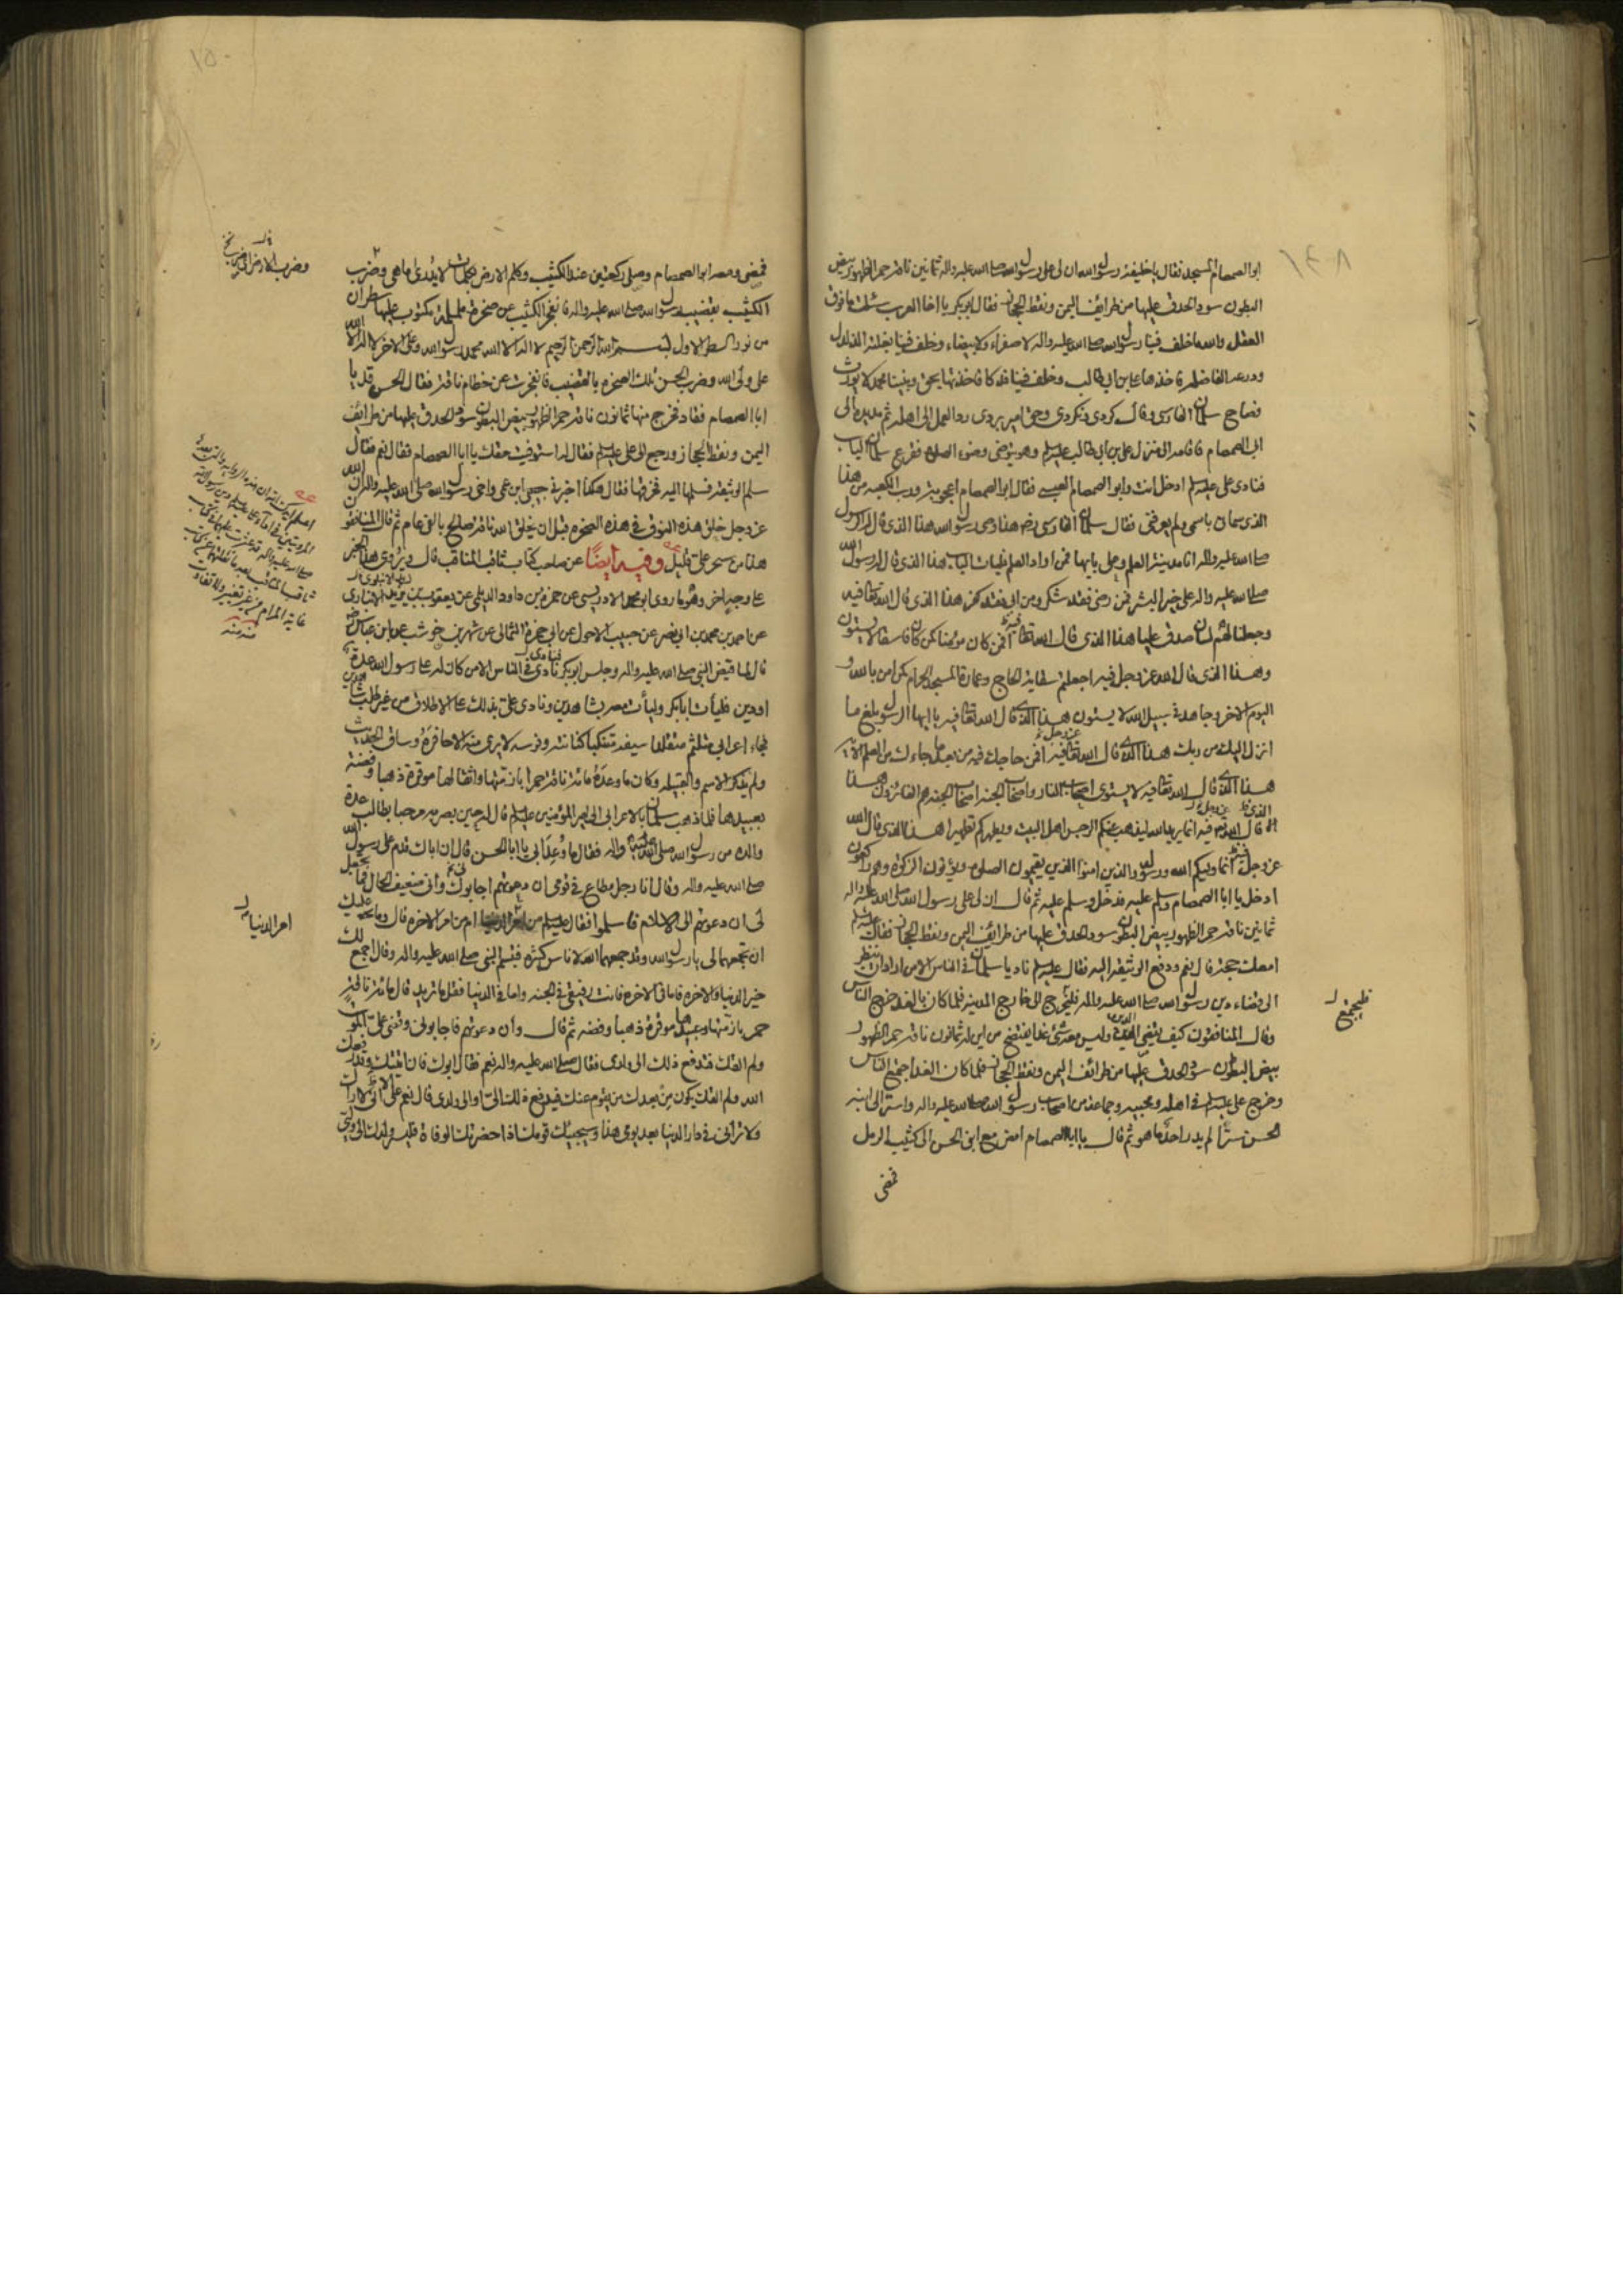 ١٤٨
ابو الصمصام المسجد فقال يا خليفة رسول الله ان لى على رسول الله صلى الله عليه واله ثمانين ناقة حمر الظهور بيض
البطون سود الحدق عليها من طرائف اليمن ونقط الحجاز فقال ابو بكر يا اخا العرب سئلت ما فوق
العقل والله ما خلف فينا رسول الله صلى الله عليه واله لا صفراء ولا بيضاء وخلف فينا بغلته الدلدل
ودرعه الفاضله فاخذها على بن ابى طالب وخلف فينا فدكا فاخذتها بحق ونبينا محمد لا يورث
فصاح سلمان الفارسى وقال كردى ونكردى وحق امير بردى رد العمل الى اهله ثم مد يده الى
ابى الصمصام فاقامه الى منزل على بن ابى طالب عليه السلم وهو يتوضى وضوء الصلوة فقرع سلمان الباب
فنادى على عليه السلم ادخل انت وابو الصمصام العبسى فقال ابو الصمصام اعجوبة ورب الكعبه من هذا
الذى سمانى باسمى ولم يعرفنى فقال سلمان الفارسى رضه هذا وصى رسول الله هذا الذى قال له الرسول
صلى الله عليه واله انا مدينة العلم وعلى بابها فمن اراد العلم فليات الباب هذا الذى قال له رسول الله
صلى الله عليه واله على خير البشر فمن رضى فقد شكر ومن ابى فقد كفر هذا الذى قال الله تعالى فيه
وجعلنا لهم لسان صدق عليا هذا الذى قال الله تعالى فيه افمن كان مؤمنا كمن كان فاسقا لا يستون
وهذا الذى قال الله عز وجل فيه اجعلتم سقاية الحاج وعمارة المسجد الحرام كمن امن بالله و
اليوم الاخر وجاهد فى سبيل الله لا يستون هذا الذى قال الله تعالى فيه يا ايها الرسول بلغ ما
انزل اليك من ربك هذا الذى قال الله عز وجل فيه فمن حاجك فيه من بعد ما جاءك من العلم الآية
هذا الذى قال الله تعالى فيه لا يستوى اصحاب النار واصحاب الجنة اصحاب الجنة هم الفائزون هذا
الذى قال الله عز وجل فيه انما يريد الله ليذهب عنكم الرجس اهل البيت ويطهركم تطهيرا هذا الذى قال الله
عز وجل فيه انما وليكم الله ورسوله والذين امنوا الذين يقيمون الصلوة ويؤتون الزكوة وهم راكعون
ادخل يا ابا الصمصام وسلم عليه فدخل وسلم عليه ثم قال ان لى على رسول الله صلى الله عليه واله
ثمانين ناقة حمر الظهور بيض البطون سود الحدق عليها من طرائف اليمن ونقط الحجاز فقال عليه السلم
امعك حجة قال نعم ودفع الوثيقة اليه فقال عليه السلم ناد يا سلمان فى الناس الا من اراد ان ينظر
الى قضاء دين رسول الله صلى الله عليه واله فليخرج الى خارج المدينه فلما كان بالغد خرج الناس
فليجتمع ل
وقال المنافقون كيف يقضى الدين وليس معه شئ غدا يفتضح من اين له ثمانون ناقة حمر الظهور
بيض البطون سود الحدق عليها من طرائف اليمن ونقط الحجاز فلما كان الغد اجتمع الناس
وخرج على عليه السلم فى اهله ومحبيه وجماعة من اصحاب رسول الله صلى الله عليه واله واسر الى ابنه
الحسن سرًا لم يدر احد ما هو ثم قال يا ابا الصمصام امض مع ابنى الحسن الى كثيب الرمل
فمضى
١٥٠
فمضى ومعه ابو الصمصام وصلى ركعتين عند الكثيب وكلم الارض بكلمات لا يدرى ما هى وضرب
الكثيب بقضيب رسول الله صلى الله عليه واله فانفجر الكثيب عن صخرة ململمة مكتوب عليها سطران
من نور السطر الاول بسم الله الرحمن الرحيم لا اله الا الله محمد رسول الله وعلى الاخر لا اله الا الله
على ولى الله وضرب الحسن تلك الصخرة بالقضيب فانفجرت عن خطام ناقة فقال الحسن قد يا
ابا الصمصام فقاد فخرج منها ثمانون ناقة حمر الظهور بيض البطون سود الحدق عليها من طرائف
اليمن ونقط الحجاز ورجع الى على عليه السلم فقال له استوفيت حقك يا ابا الصمصام فقال نعم فقال
سلم الوثيقة فسلمها اليه فخرقها فقال هكذا اخبرنى حبيبى ابن عمى واخى رسول الله صلى الله عليه واله ان الله
عز وجل خلق هذه النوق فى هذه الصخرة قبل ان يخلق الله ناقة صالح بالفى عام ثم قال المنافقون
هذا من سحر على قليل وفيه ايضًا عن صاحب كتاب ثاقب المناقب قال ويروى هذا الخبر
على وجه اخر وهو ما روى ابو محمد الادريسى عن حمزة بن داود الديلى عن يعقوب بن يزيد الانبارى
عن احمد بن محمد بن ابى نصر عن حبيب الاحول عن ابى حمزة الثمالى عن شهر بن حوشب عن ابن عباس
قال لما قبض النبى صلى الله عليه واله وجلس ابو بكر نادى فى الناس الا من كان له على رسول الله عدة
او دين فليأت ابا بكر وليأت معه بشاهدين ونادى على بذلك على الاطلاق من غير طلب شاهدين
فجاء اعرابى متلثم متقلدا سيفه متنكبا كنانته وفرسه لا يرى منه الا حافره وساق الحديث
ولم يذكر الاسم والقبيله وكان ما وعده مائة ناقة حمرا بازمتها واثقالها موقرة ذهبا وفضة
بعبيدها فلما ذهب سلمان بالاعرابى الى امير المؤمنين عليه السلم قال له حين بصر به مرحبا بطالب عدة
والده من رسول الله صلى الله عليه واله فقال ما وعد ابى يا ابا الحسن قال ان اباك قدم على رسول الله
صلى الله عليه واله وقال انا رجل مطاع فى قومى ان دعوتهم اجابوك وانى ضعيف الحال فما تجعل
لى ان دعوتهم الى الاسلام فاسلموا فقال عليه السلم من امر الدنيا ام من امر الاخرة قال وما عليك
امر الدنيا ل
ان تجمعهما لى يا رسول الله وقد جمعهما الله لاناس كثيرة فتبسم النبى صلى الله عليه واله وقال اجمع لك
خير الدنيا والاخرة فاما فى الاخرة فانت رفيقى فى الجنة واما فى الدنيا فقل ما تريد قال مائة ناقة
حمر بازمتها وعبيدها موقرة ذهبا وفضه ثم قال وان دعوتهم فاجابونى وقضى على الموت
ولم القك فتدفع ذلك الى ولدى فقال صلى الله عليه واله نعم فقال ابوك فان اتيتك وقد رفعك
الله ولم القك يكون من بعدك من يقوم عنك فيدفع ذلك الىّ او الى ولدى قال نعم على انى لا اراك
ولا ترانى فى دار الدنيا بعد يومى هذا وسيجيبك قومك فاذا حضرتك الوفاة فليصر ولدك الى وليى